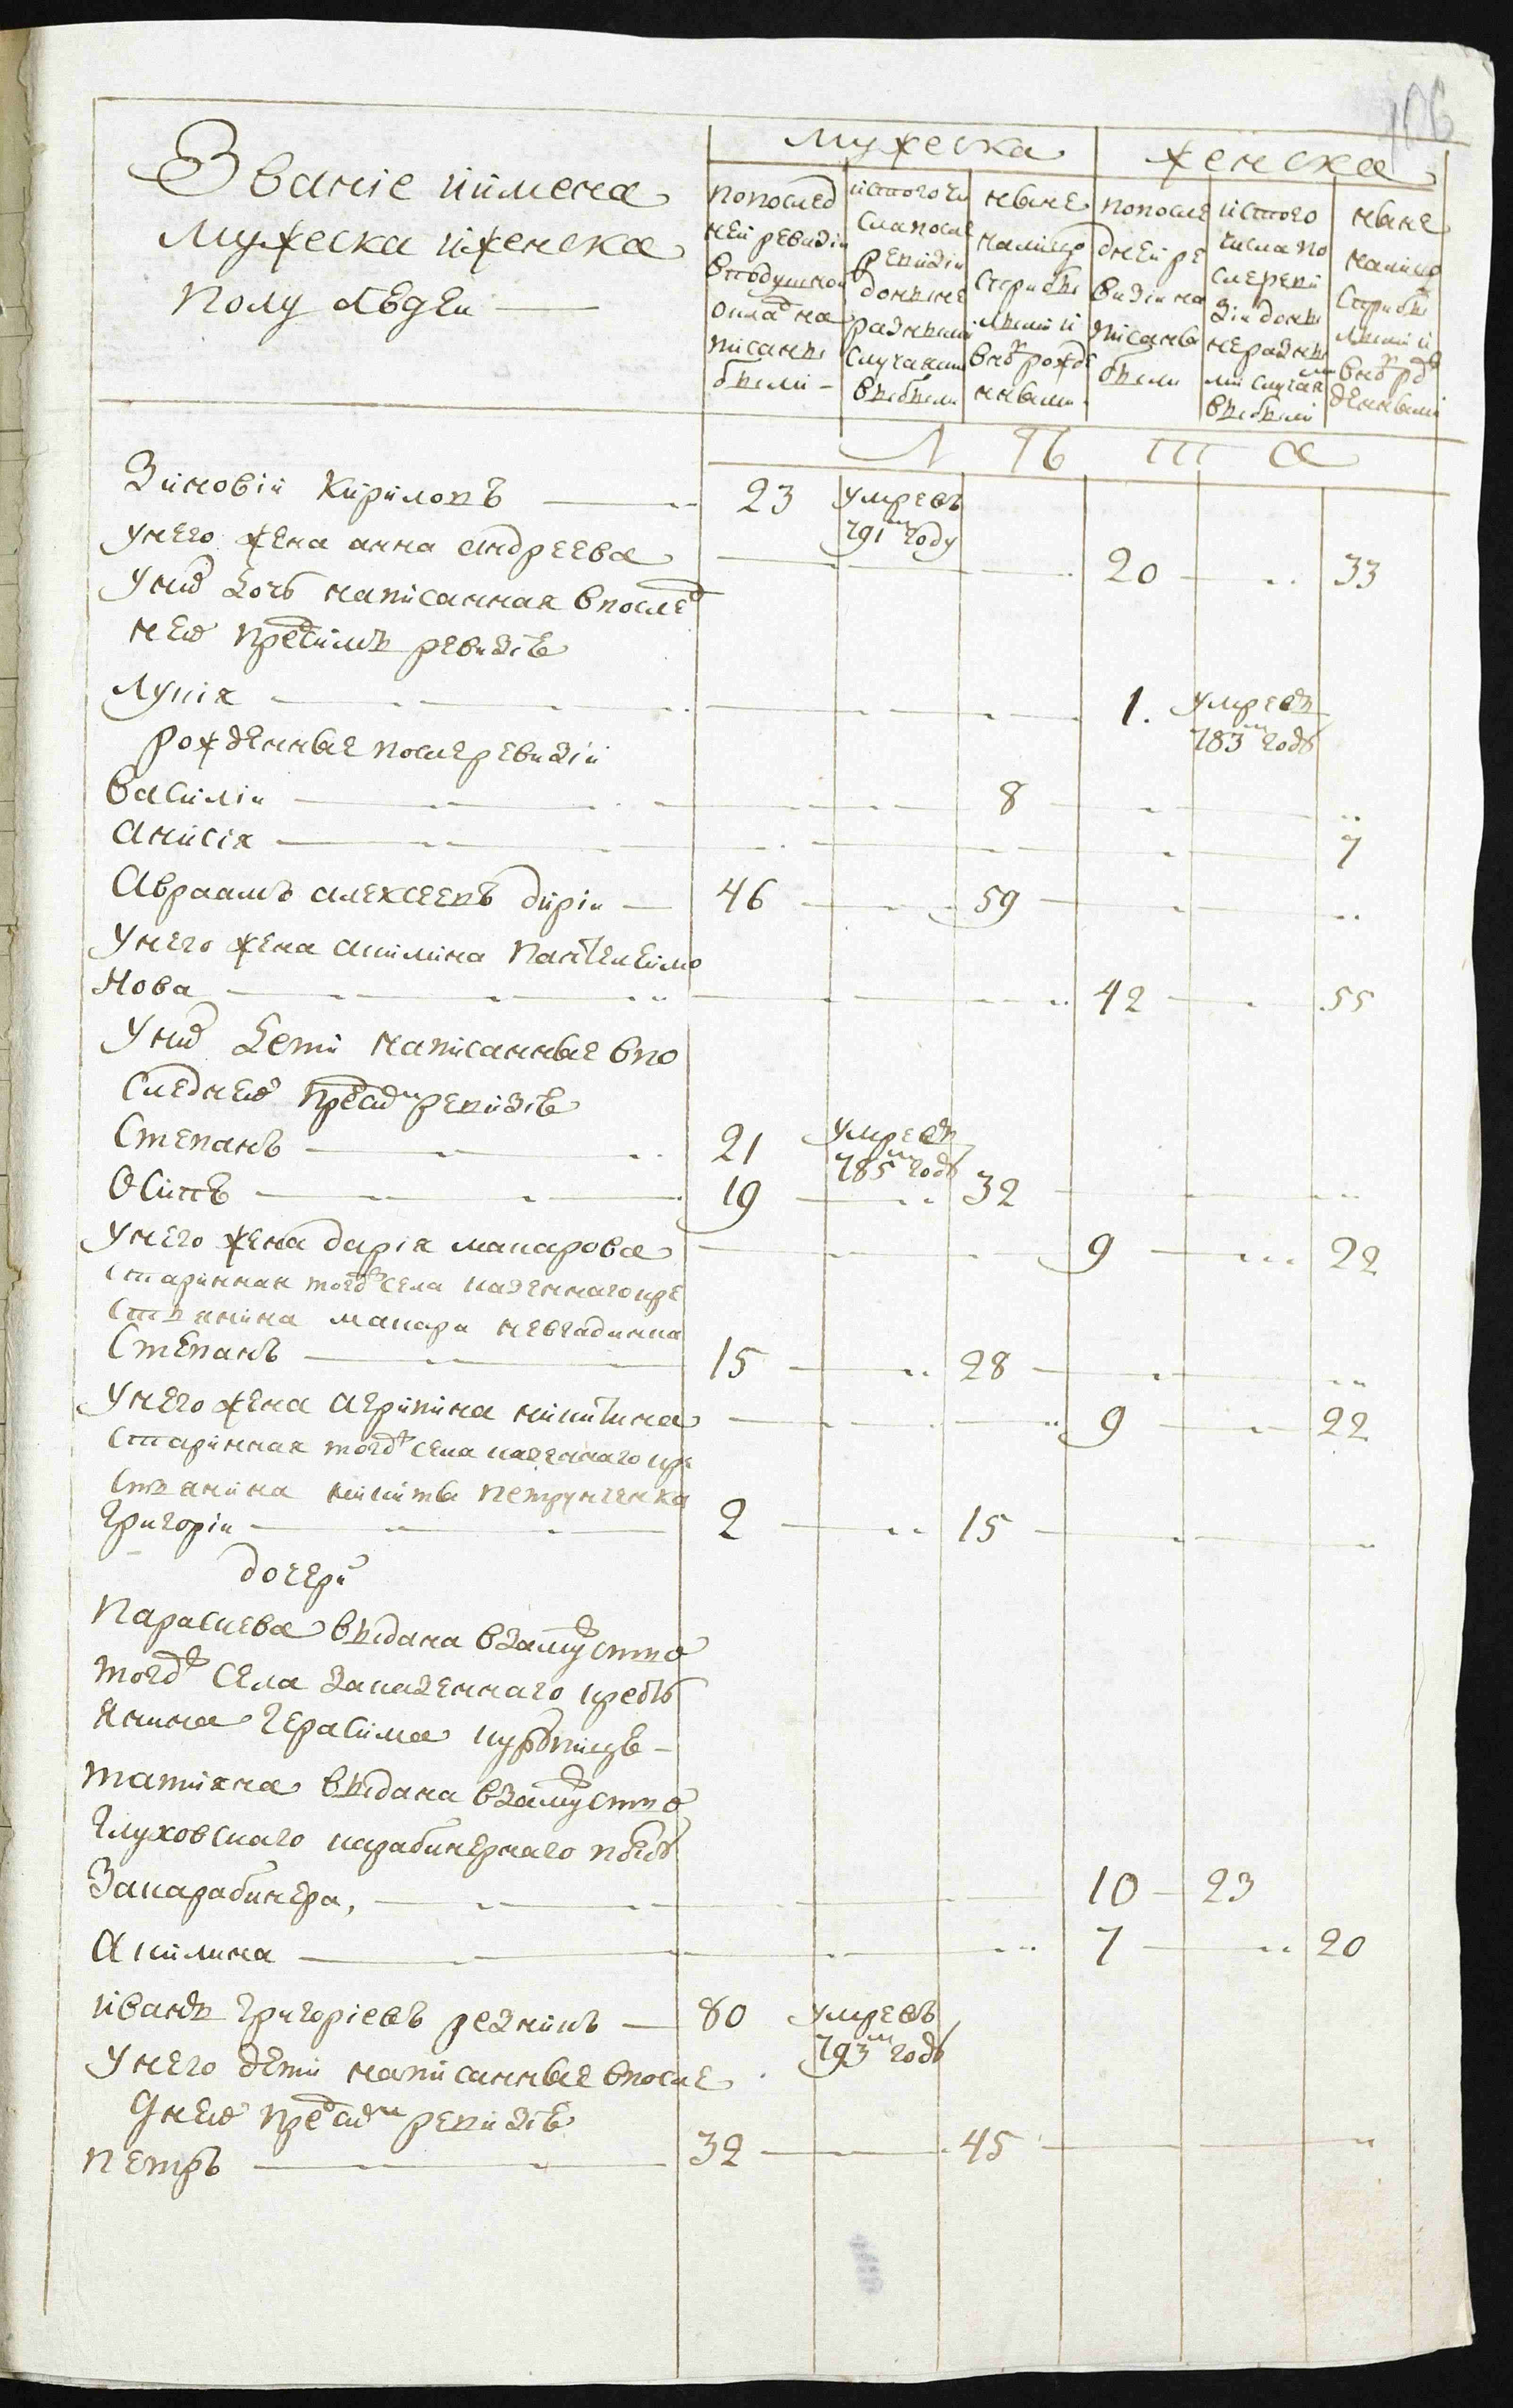 106
Званіе иимена
мужеска иженска
полу людей
мужеска
женска
попослед
ней ревизіи
вподушной
оклад на
писаны
были
истого чи
сла после
ревизіи
доныне
разными
случаями
выбыли
ныне
налицо
старыбы
лыми и
вновь рожде
нными
попосле
дней ре
визіи на
писаны
были
истого
числа по
слереви
зіи доны
неразны
ми случая
выбыли
ныне
налицо
старыбы
лыми и
вновь рож
денными
лѣта
Зиновій Кириловъ 23 умревъ 791м году
унего жена анна андреева 20 33
уних дочь написанная впослед
ней пред симъ ревизіи
Лукія 1. умревъ 783м годе
рожденные послеревизіи
василій 8
анисія 7
Авраамъ алексеевъ дирій 46 59
унего жена акилина пантелеимо
нова 42 55
уних дети написанные впо
следней пред сим ревизіи
Степанъ 21 умревъ 785м годе
Осипъ 19 32
унего жена дарія макарова 9 22
старинная тогож села казеннаго кре
стьянина макара
Степанъ 15 28
унего жена агрипина никитина 9 22
старинная тогож села казеннаго кре
стьянина никиты петрунченка
Григорій 2 15
дочери
параскева выдана взамужство
тогож села заказеннаго кресть
янина герасима
татияна выдана взамужство
глуховскаго карабинернаго полку
закарабинера, 10 23
акилина 7 20
иванъ григоріевъ резникъ 80 умревъ 793м годе
унего дети написанные впосле
дней пред сим ревизіи
петръ 32 45